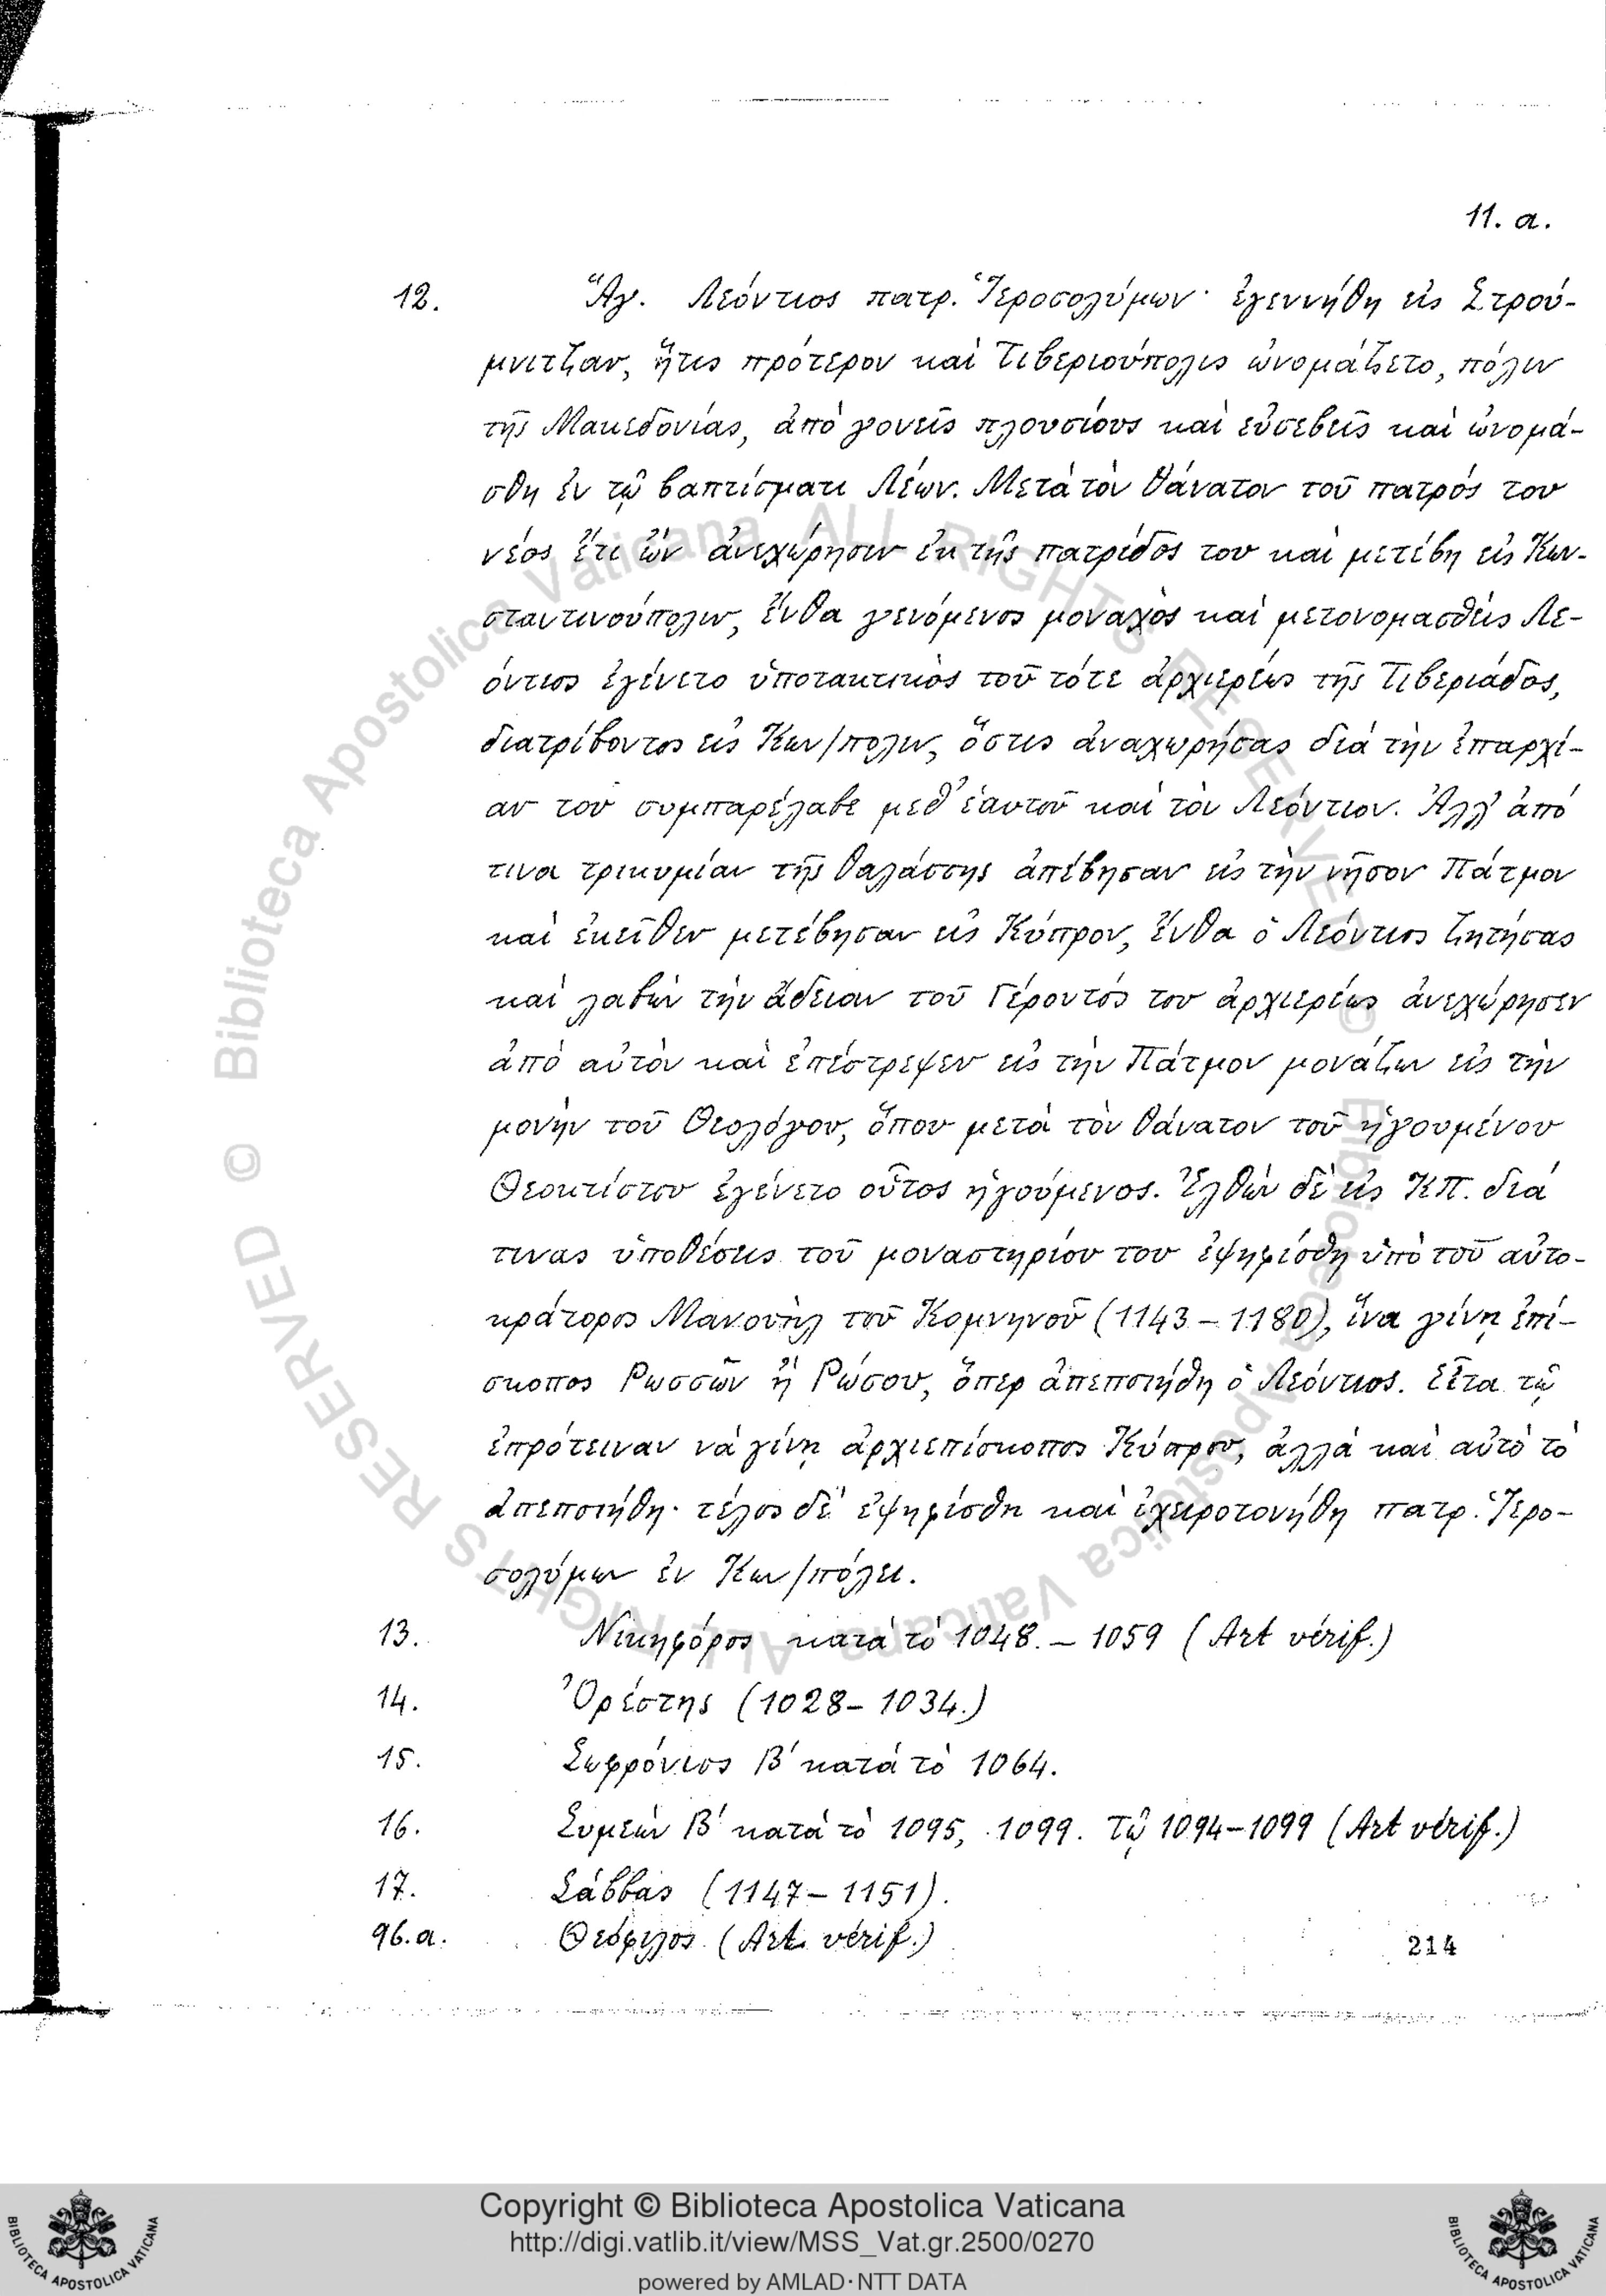 11. α.
12. Ἅγ. Λεόντιος πατρ. Ἱεροσολύμων· ἐγεννήθη εἰς Στρού-
μνιτζαν, ἥτις πρότερον καὶ Τιβεριούπολις ὠνομάζετο, πόλιν
τῆς Μακεδονίας, ἀπὸ γονεῖς πλουσίους καὶ εὐσεβεῖς καὶ ὠνομά-
σθη ἐν τῷ βαπτίσματι Λέων. Μετὰ τὸν θάνατον τοῦ πατρός του
νέος ἔτι ὢν ἀνεχώρησεν ἐκ τῆς πατρίδος του καὶ μετέβη εἰς Κων-
σταντινούπολιν, ἔνθα γενόμενος μοναχὸς καὶ μετονομασθεὶς Λε-
όντιος ἐγένετο ὑποτακτικὸς τοῦ τότε ἀρχιερέως τῆς Τιβεριάδος,
διατρίβοντος εἰς Κων/πολιν, ὅστις ἀναχωρήσας διὰ τὴν ἐπαρχί-
αν του συμπαρέλαβε μεθ' ἑαυτοῦ καὶ τὸν Λεόντιον. Ἀλλ' ἀπό
τινα τρικυμίαν τῆς θαλάσσης ἀπέβησαν εἰς τὴν νῆσον Πάτμον
καὶ ἐκεῖθεν μετέβησαν εἰς Κύπρον, ἔνθα ὁ Λεόντιος ζητήσας
καὶ λαβὼν τὴν ἄδειαν τοῦ Γέροντός του ἀρχιερέως ἀνεχώρησεν
ἀπὸ αὐτὸν καὶ ἐπέστρεψεν εἰς τὴν Πάτμον μονάζων εἰς τὴν
μονὴν τοῦ Θεολόγου, ὅπου μετὰ τὸν θάνατον τοῦ ἡγουμένου
Θεοκτίστου ἐγένετο οὗτος ἡγούμενος. Ἐλθὼν δὲ εἰς Κ.Π. διά
τινας ὑποθέσεις τοῦ μοναστηρίου του ἐψηφίσθη ὑπὸ τοῦ αὐτο-
κράτορος Μανουὴλ τοῦ Κομνηνοῦ (1143 – 1180), ἵνα γίνῃ ἐπί-
σκοπος Ρωσσῶν ἢ Ρώσου, ὅπερ ἀπεποιήθη ὁ Λεόντιος. Εἶτα τῷ
ἐπρότειναν νὰ γίνῃ ἀρχιεπίσκοπος Κύπρου, ἀλλὰ καὶ αὐτὸ τὸ
ἀπεποιήθη· τέλος δὲ ἐψηφίσθη καὶ ἐχειροτονήθη πατρ. Ἱερο-
σολύμων ἐν Κων/πόλει.
13. Νικηφόρος κατὰ τὸ 1048. – 1059 (Art vérif.)
14. Ὀρέστης (1028 – 1034.)
15. Σωφρόνιος Β΄ κατὰ τὸ 1064.
16. Συμεὼν Β΄ κατὰ τὸ 1095, 1099. Τῷ 1094–1099 (Art vérif.)
17. Σάββας (1147 – 1151).
96.α. Θεόφιλος (Art. vérif.)
214
© Biblioteca Apostolica Vaticana ALL RIGHTS RESERVED
© Biblioteca Apostolica Vaticana ALL RIGHTS RESERVED
Copyright © Biblioteca Apostolica Vaticana
http://digi.vatlib.it/view/MSS_Vat.gr.2500/0270
powered by AMLAD·NTT DATA
BIBLIOTECA APOSTOLICA VATICANA
BIBLIOTECA APOSTOLICA VATICANA